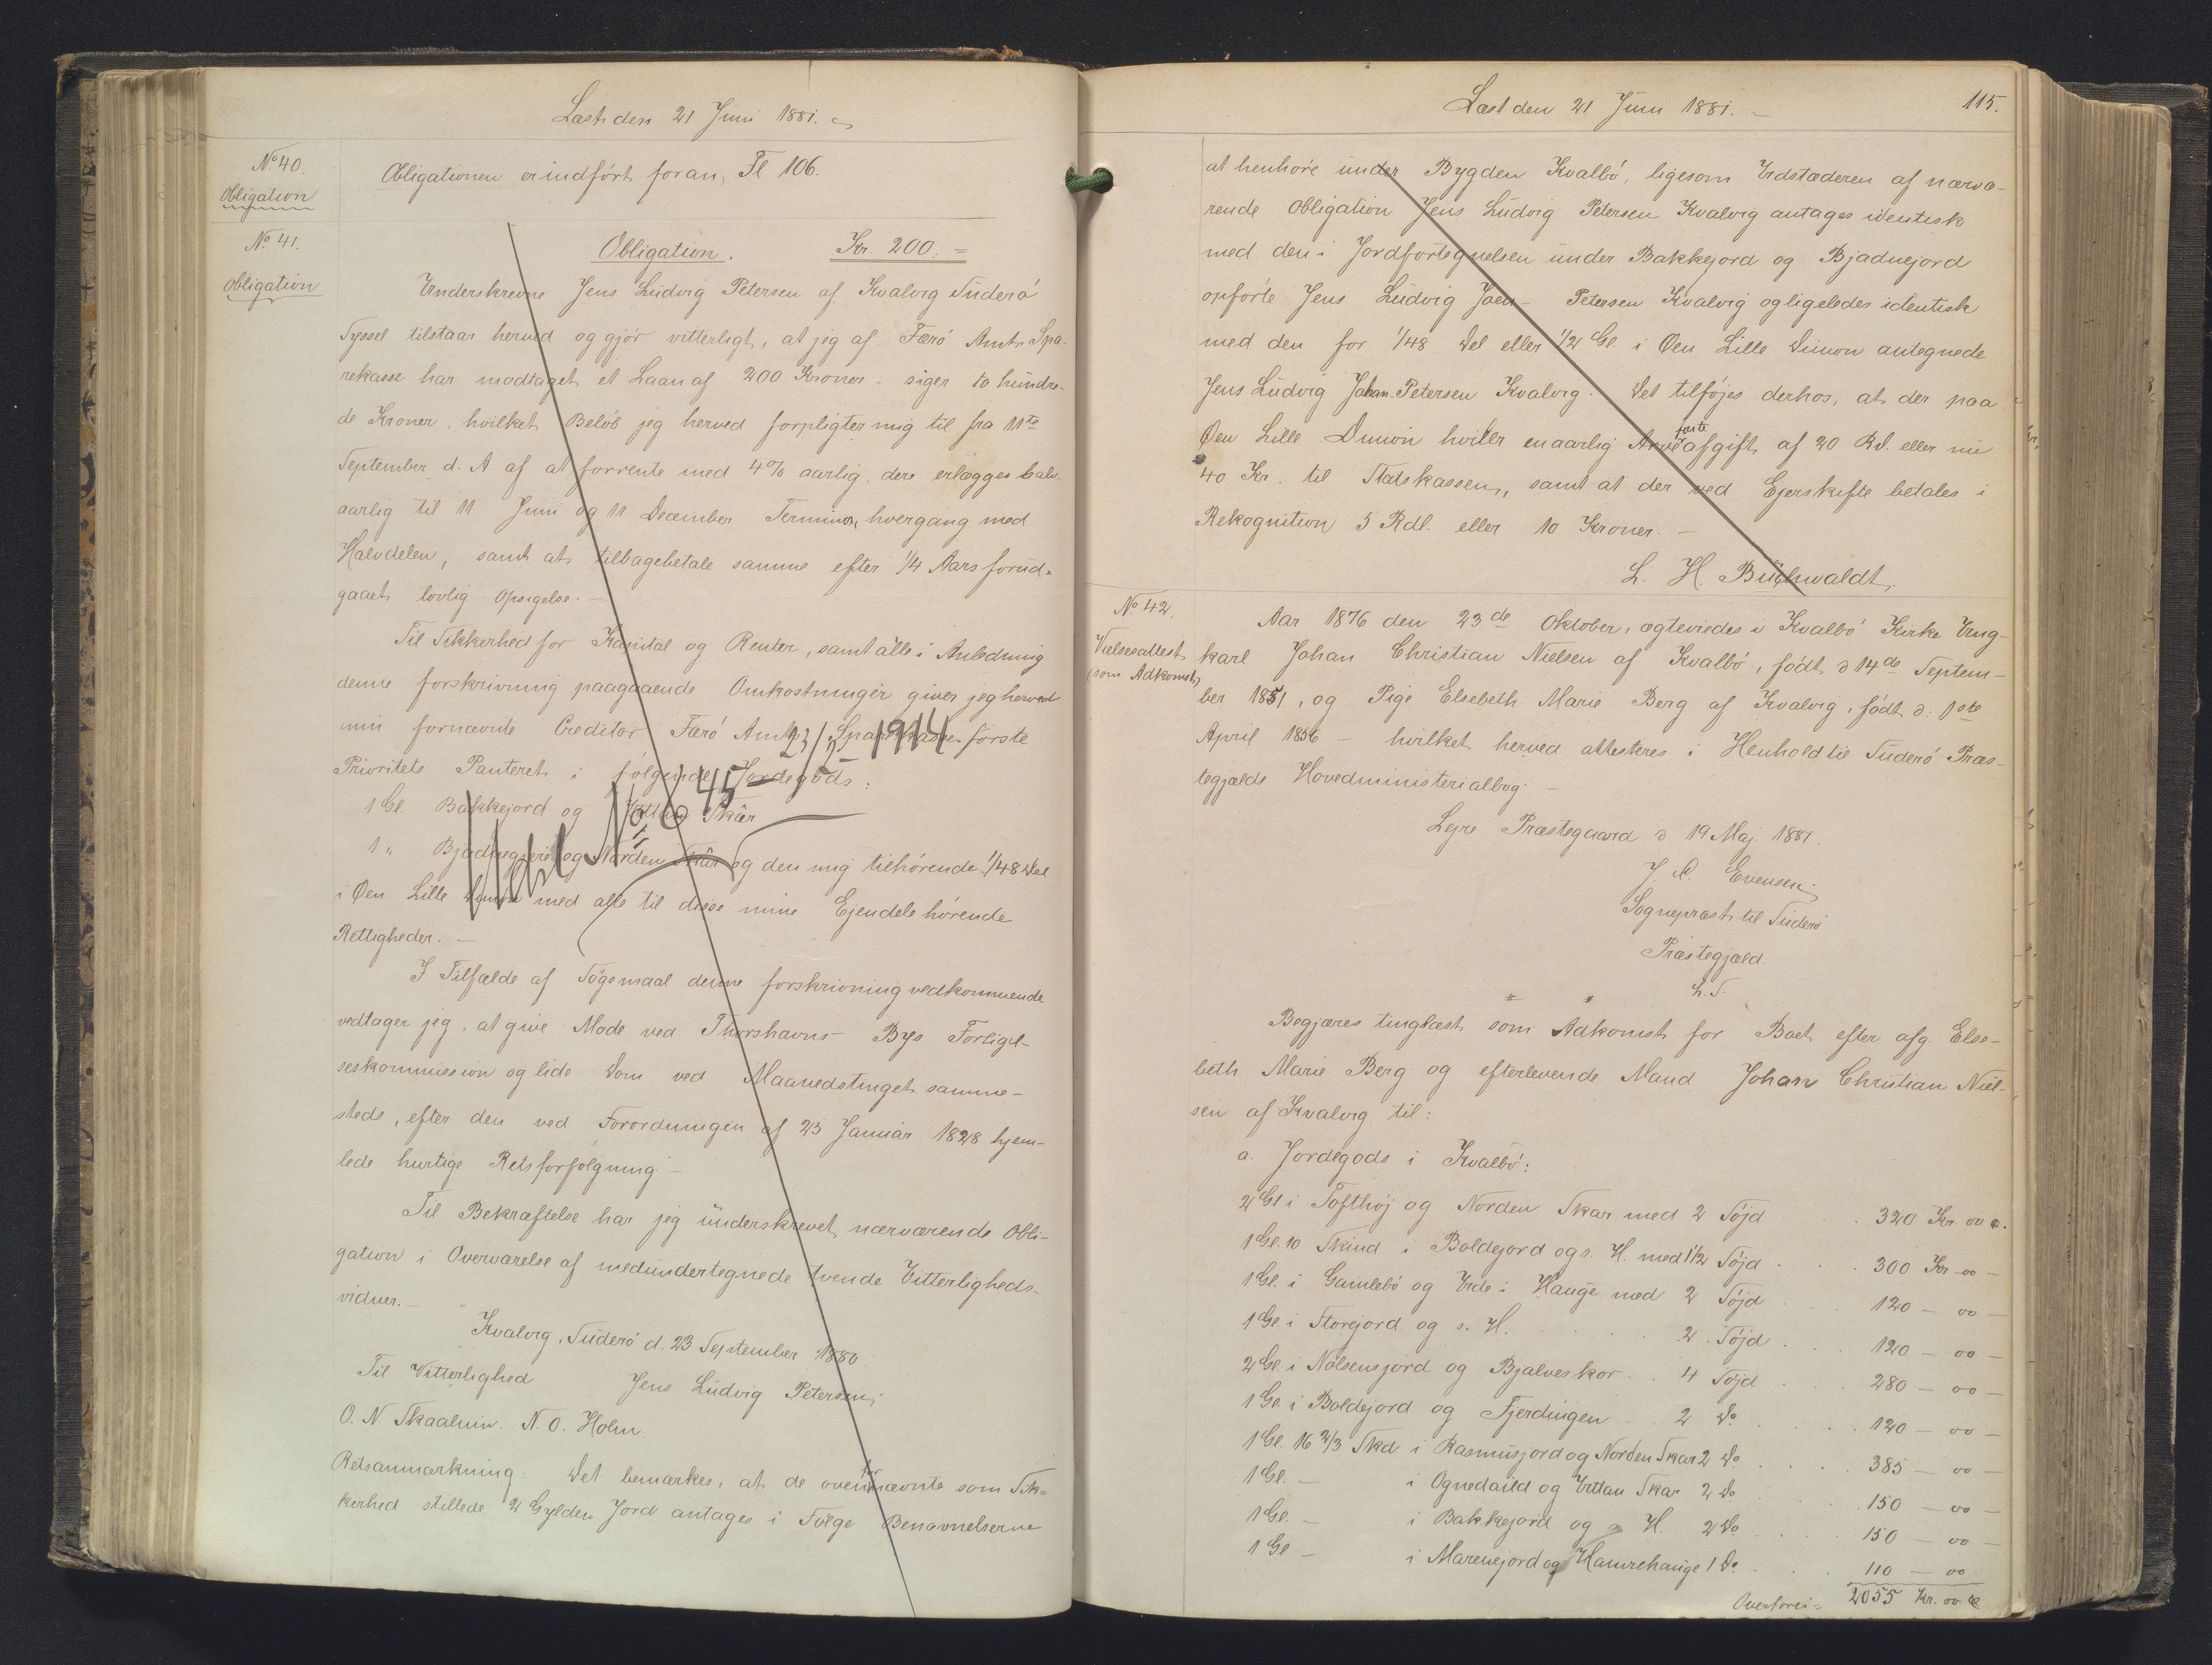 Læst den 21 Juni 1881.
No. 40.
Obligation
Obligationen er indført foran, Fl 106.
No. 41.
Obligation
Obligation. Kr 200. =
Underskrevne Jens Ludvig Petersen af Kvalvig Suderø
Syssel tilstaar herved og gjør vitterligt, at jeg af Færø Amts Spa-
rekasse har modtaget et Laan af 200 Kroner - siger to hundre-
de Kroner, hvilket Beløb jeg herved forpligter mig til fra 11te
September d. A. af at forrente med 4% aarlig, der erlægges halv-
aarlig til 11 Juni og 11 December Termin, hvergang med
Halvdelen, samt at tilbagebetale samme efter 1/4 Aars forud-
gaaet lovlig Opsigelse. -
Til Sikkerhed for Kapital og Renter, samt alle i Anledning
denne forskrivning paagaaende Omkostninger giver jeg herved
min fornævnte Creditor Færø Amts Sparekasse første
23/12 1914
Prioritets Panteret i følgende Jordegods:
1 Gl. Bakkejord og Uttan Skar
1 " Bjadnegjerd og Norden Skar og den mig tilhørende 1/48 Del
i Øen Lille Dimon med alle til disse mine Ejendele hørende
Rettigheder. -
I Tilfælde af Søgsmaal denne forskrivning vedkommende
vedtager jeg, at give Møde ved Thorshavns Bys Forligel-
seskommission og lide Dom ved Maanedstinget samme-
steds, efter den ved Forordningen af 25 Januar 1828 hjem-
lede hurtige Retsforfølgning -
Til Bekræftelse har jeg underskrevet nærværende Obli-
gation i Overværelse af medundertegnede tvende Vitterligheds-
vidner. -
Kvalvig, Suderø d. 23 September 1880.
Til Vitterlighed Jens Ludvig Petersen.
O. N. Skaalum. N. O. Holm.
Retsanmærkning: Det bemærkes, at de ovenfornævnte som Sik-
kerhed stillede 2 Gylden Jord antages i Følge Benævnelserne
Læst den 21 Juni 1881. -
115.
at henhøre under Bygden Kvalbø, ligesom Udstæderen af nærvæ-
rende Obligation Jens Ludvig Petersen Kvalvig antages identisk
med den i Jordfortegnelsen under Bakkejord og Bjadnejord
opførte Jens Ludvig Joen - Petersen Kvalvig og ligeledes identisk
med den for 1/48 Del eller 1/2 Gl. i Øen Lille Dimon antegnede
Jens Ludvig Johan Petersen Kvalvig. Det tilføjes derhos, at der paa
Øen Lille Dimon hviler en aarlig Arvefæsteafgift af 20 Rd. eller nu
40 Kr. til Statskassen, samt at der ved Ejerskifte betales i
Rekognition 5 Rdl. eller 10 Kroner. -
L. H. Buchwaldt.
No. 42.
Vielsesattest
(som Adkomst)
Aar 1876 den 23de Oktober, ægteviedes i Kvalbø Kirke Ung-
karl Johan Christian Nielsen af Kvalbø, født d 14de Septem-
ber 1851, og Pige Elsebeth Marie Berg af Kvalvig, født d. 1ste
April 1856 - hvilket herved attesteres i Henhold til Suderø Præs-
tegjælds Hovedministerialbog. -
Lejre Præstegaard d 19 Maj 1881.
J. A. Evensen.
Sognepræst til Suderø
Præstegjæld.
L. S.
Begjæres tinglæst som Adkomst for Boet efter afg. Else-
beth Marie Berg og efterlevende Mand Johan Christian Niel-
sen af Kvalvig til:
a. Jordegods i Kvalbø:
2 Gl i Tofthøj og Norden Skar med 2 Søjd . . 320 Kr. oo ø.
1 Gl. 10 Skind i Boldejord og s. H. med 1 1/2 Søjd . . 300 Kr oo -
1 Gl. i Gamlebø og Urde i Hauge med 2 Søjd . . 120 - oo -
1 Gl. i Storejord og s. H. . . 2 Søjd . . 120 - oo -
2 Gl. i Nolsensjord og Bjalveskor . . 4 Søjd . . 280 - oo -
1 Gl. i Boldejord og Fjerdingen . . 2 Do . . 120 - oo -
1 Gl. 16 2/3 Skd i Rasmusjord og Norden Skar 2 Do . . 385 - oo -
1 Gl. - i Ognedaild og Uttan Skar 2 Do . . 150 - oo -
1 Gl. - i Bakkejord og s. H. 2 Do . . 150 - oo -
1 Gl - i Marenejord og Hamrehauge 1 Do . . 110 - oo
Overføres = 2055 Kr. oo Ø